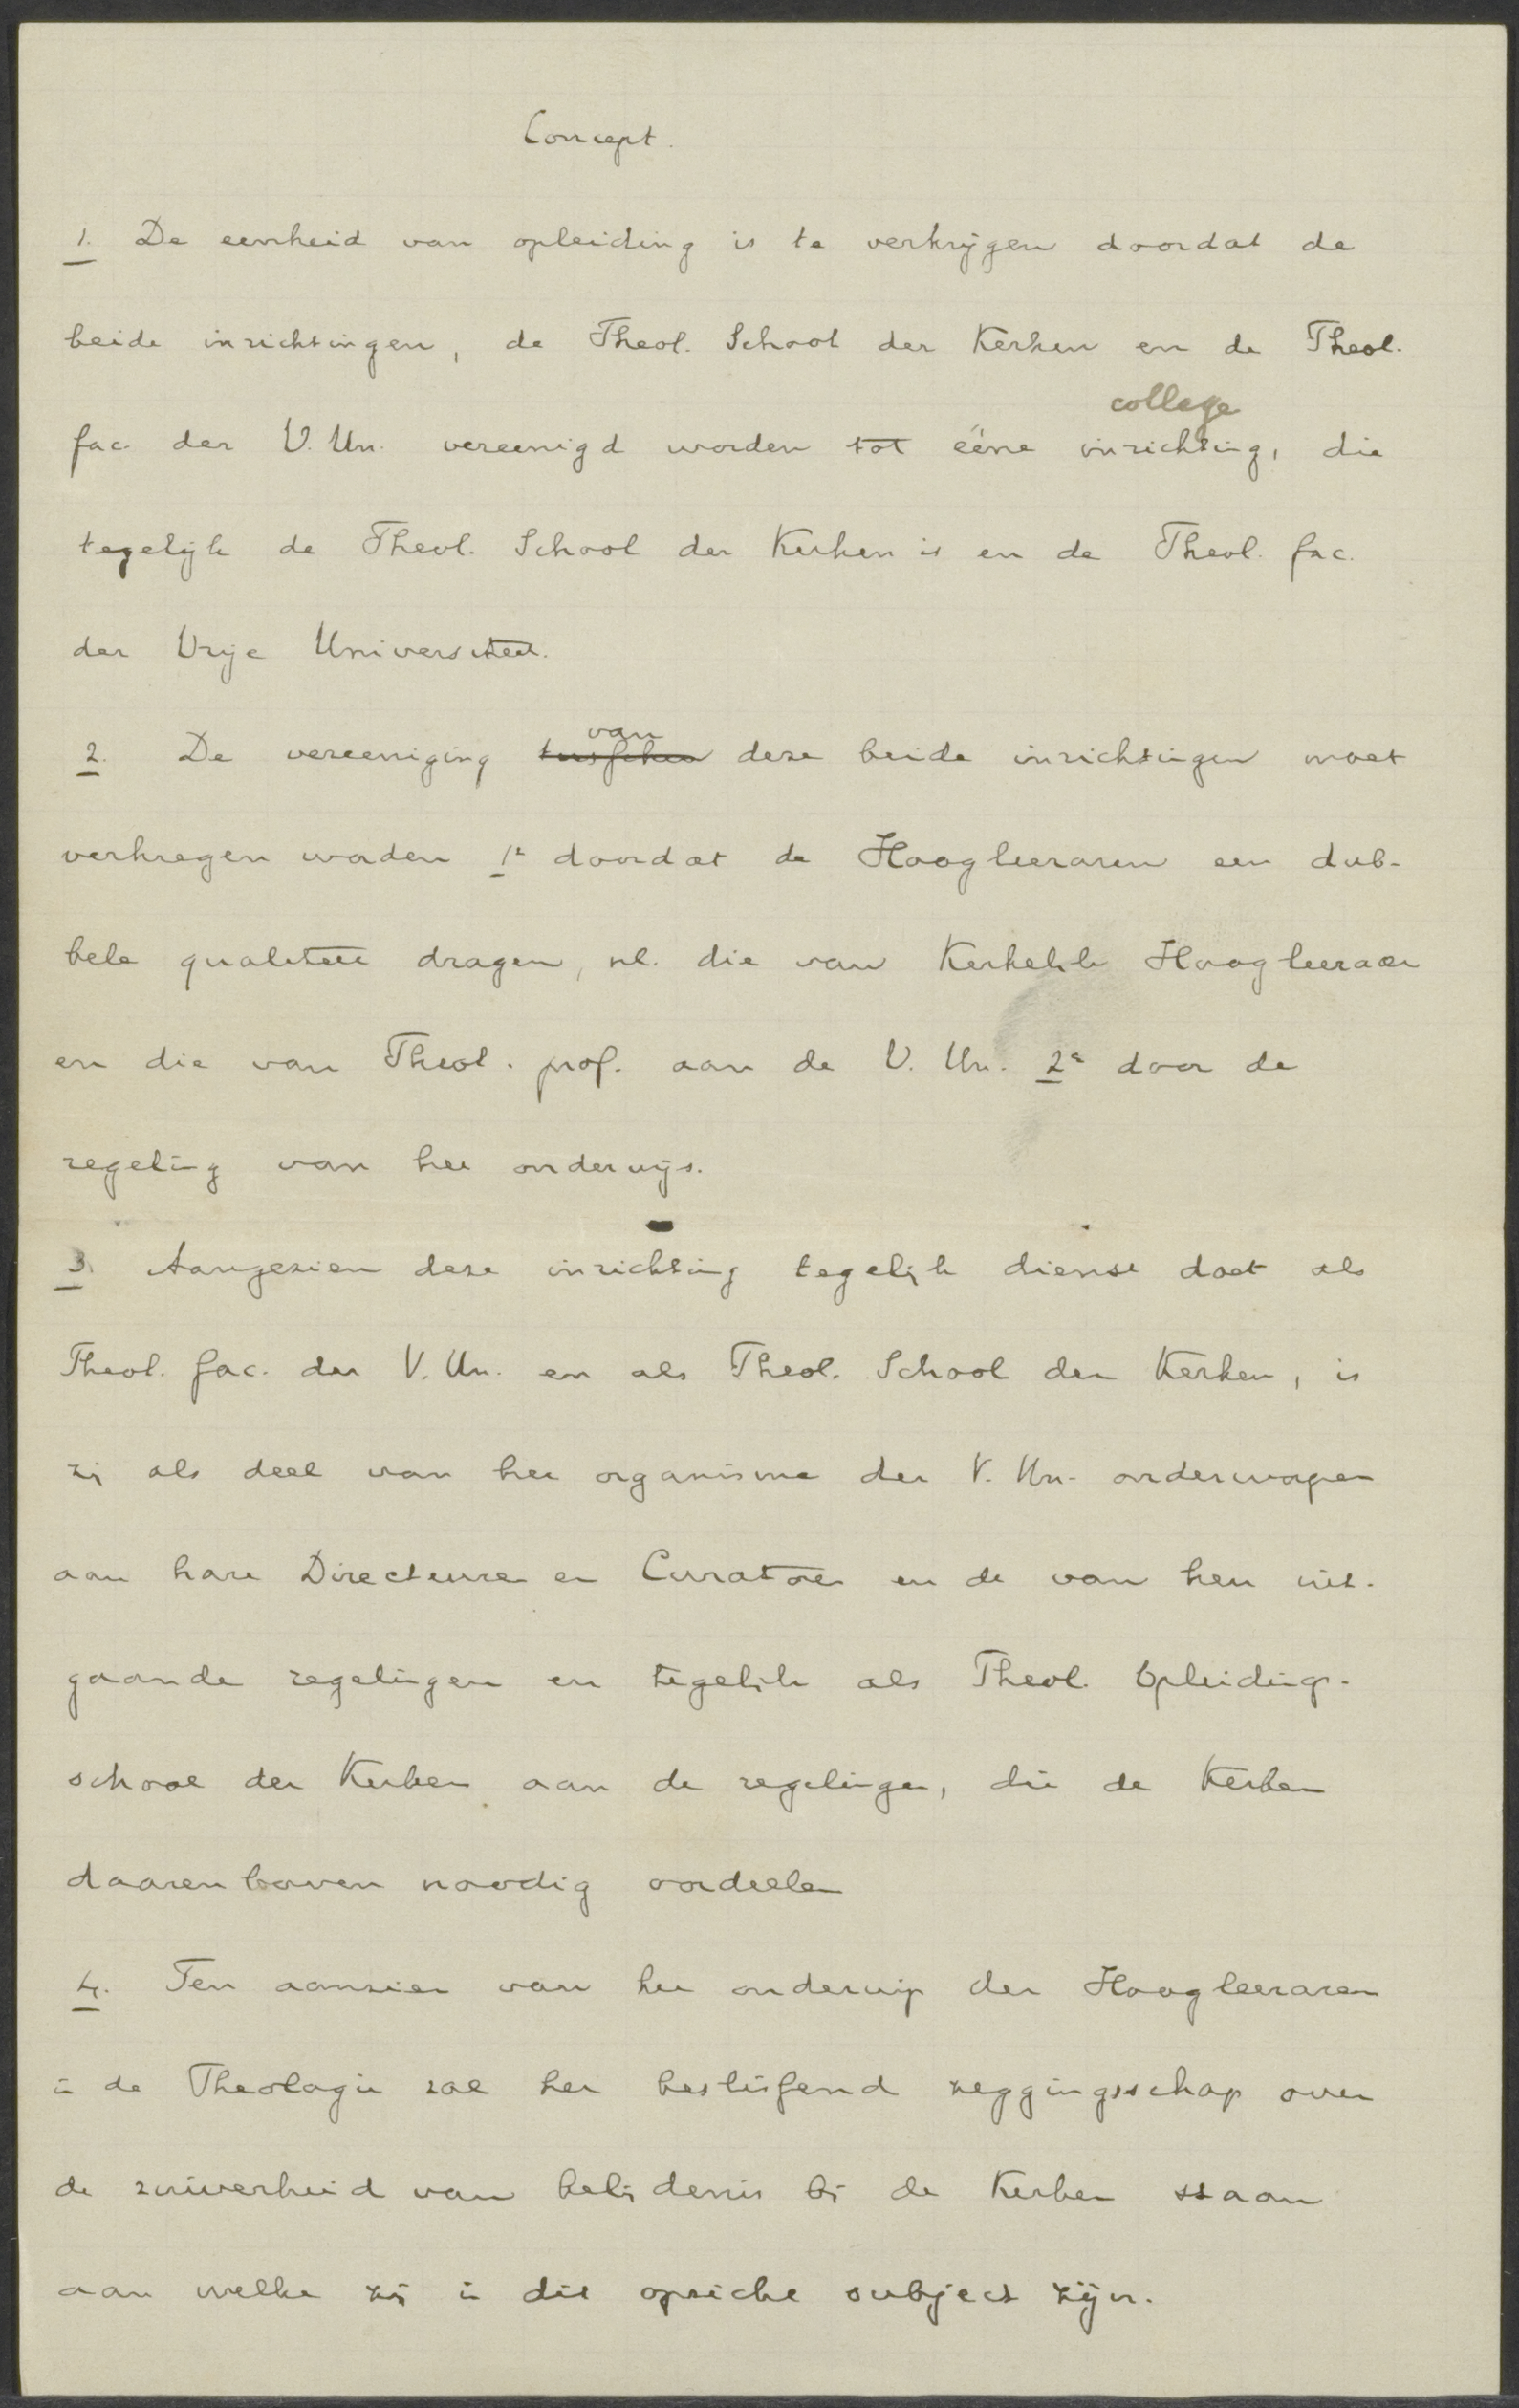 Concept.
1. De eenheid van opleiding is te verkrijgen doordat de
beide inrichtingen, de Theol. School der Kerken en de Theol.
college
fac. der V. Un. vereenigd worden tot ééne inrichting, die
tegelijk de Theol. School der Kerken is en de Theol. fac.
der Vrije Universiteit.
van
2. De vereeniging tusschen deze beide inrichtingen moet
verkregen worden 1e doordat de Hoogleeraren een dub-
bele qualiteit dragen, nl. die van Kerkelijk Hoogleeraar
en die van Theol. prof. aan de V. Un. 2e door de
regeling van het onderwijs.
3. Aangezien deze inrichting tegelijk dienst doet als
Theol. fac. der V. Un. en als Theol. School der Kerken, is
zij als deel van het organisme der V. Un. onderworpen
aan hare Directeuren en Curatoren en de van hen uit-
gaande regelingen en tegelijk als Theol. Opleidings-
school der Kerken aan de regelingen, die de Kerken
daarenboven noodig oordeelen
4. Ten aanzien van het onderwijs der Hoogleeraren
in de Theologie zal het beslissend zeggingsschap over
de zuiverheid van belijdenis bij de Kerken staan
aan welke zij in dit opzicht subject zijn.